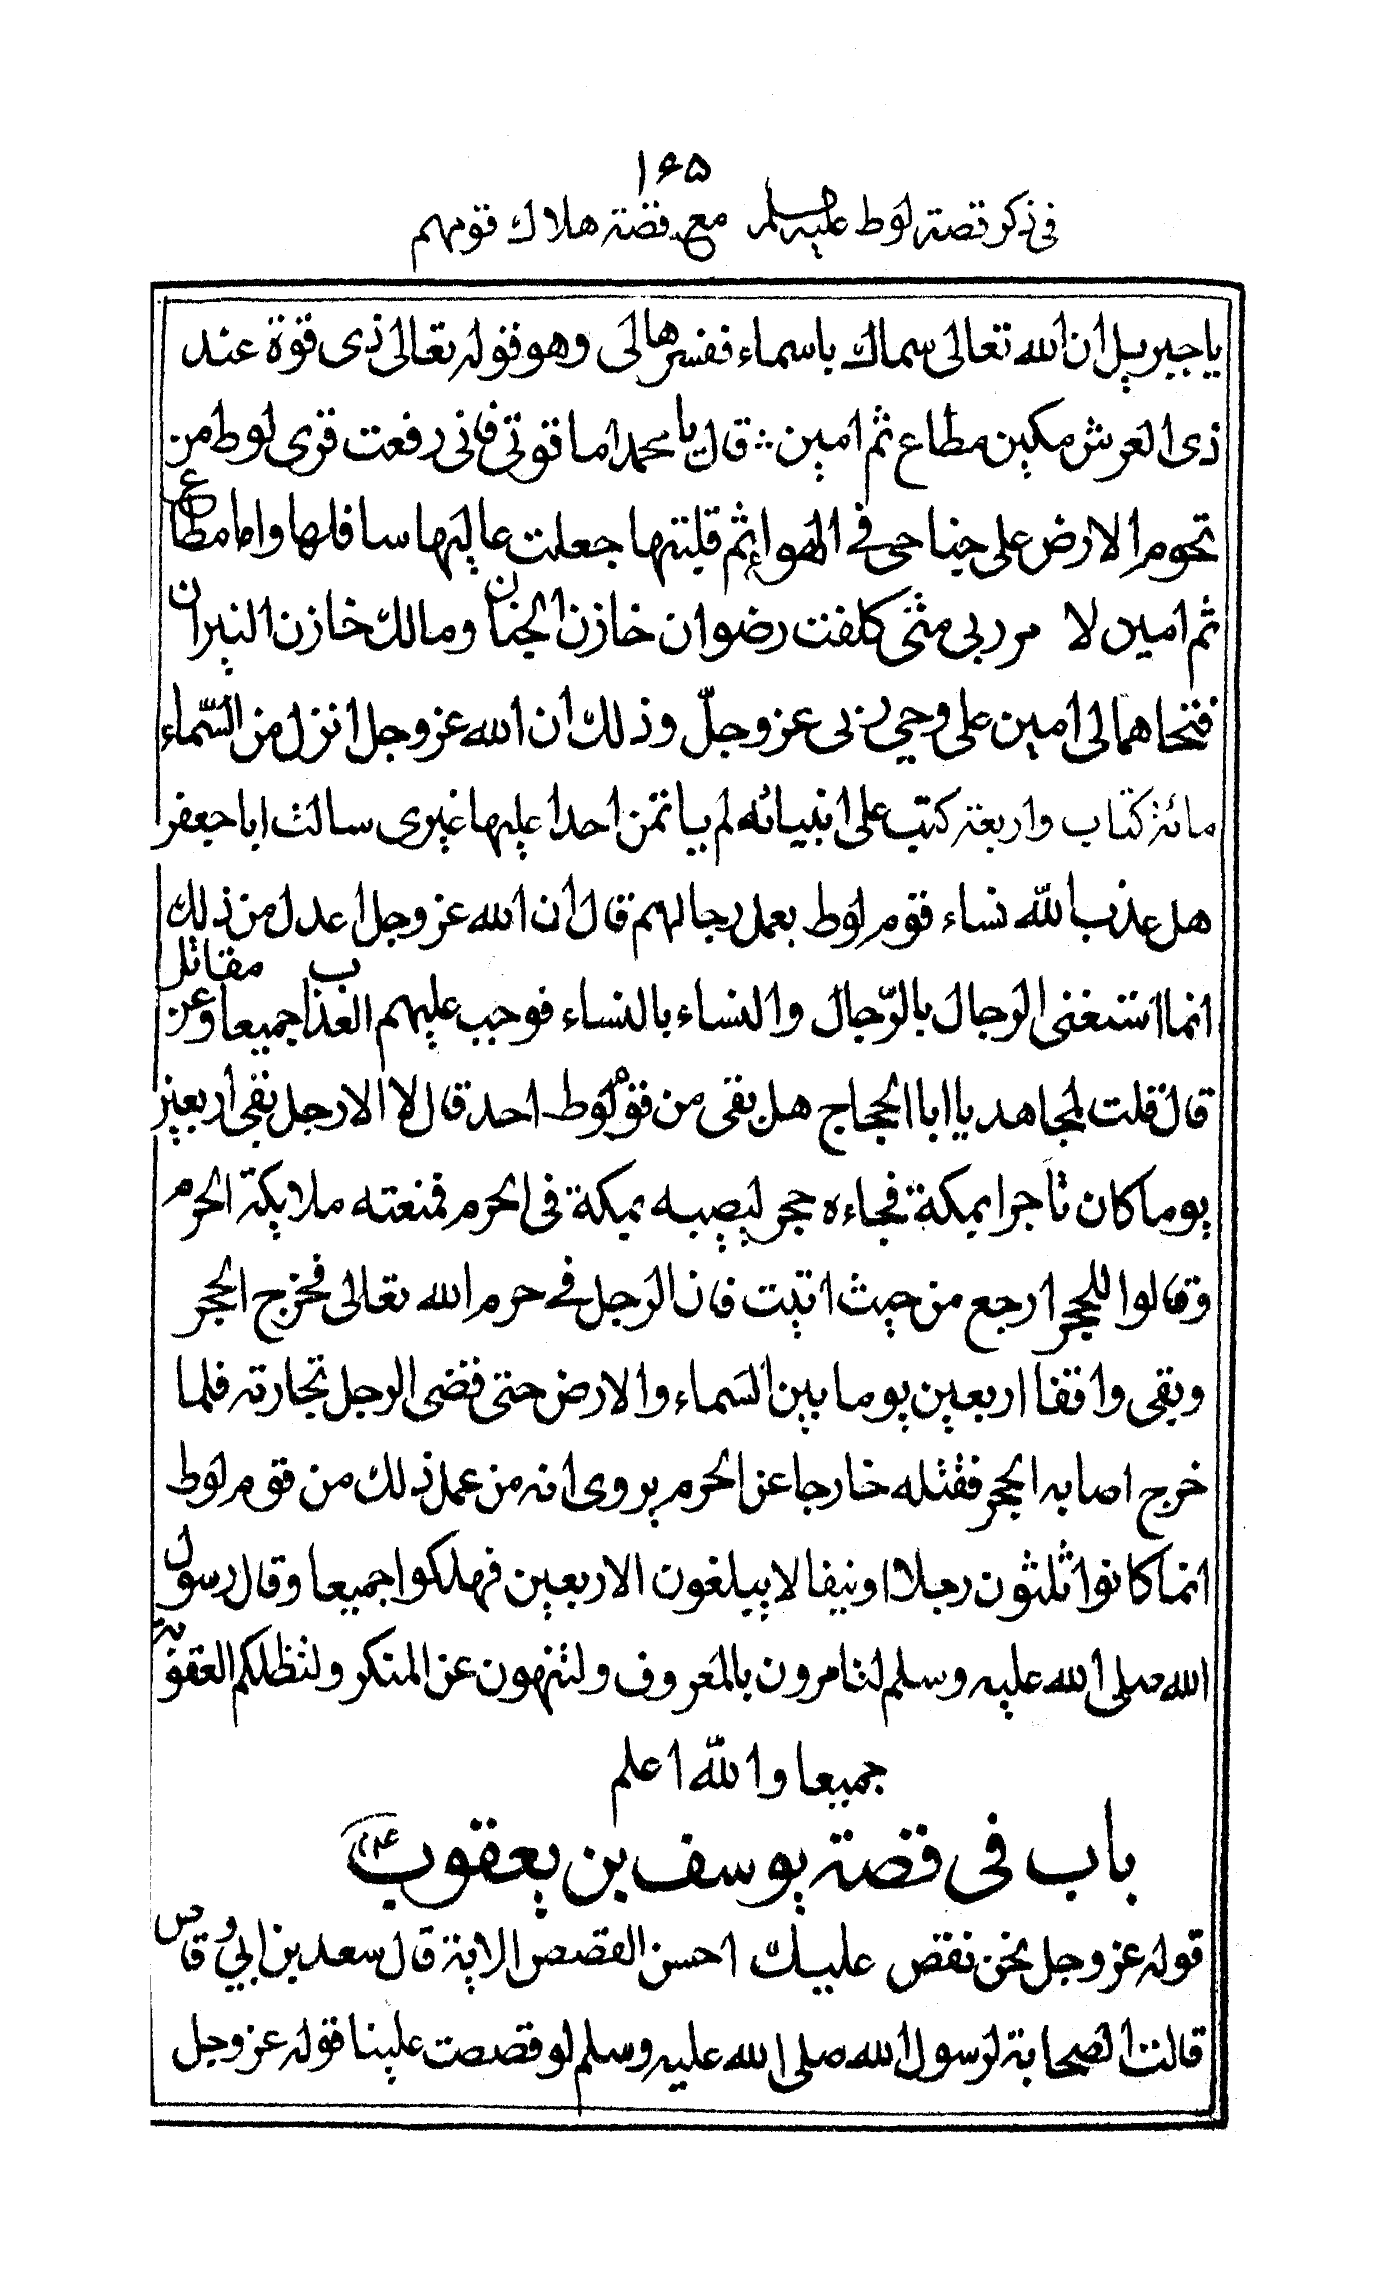 ۱۶۵
فی ذکر قصة لوط علیه السلم مع قصة هلاك قومهم
یا جبریل ان الله تعالی سماك باسماء ففسرها لی وهو قوله تعالی ذی قوة عند
ذی العرش مکین مطاع ثم امین قال یا محمد اما قوتی فانی رفعت قری لوط من
تخوم الارض علی جناحی فی الهواء ثم قلبتها جعلت عالیها سافلها واما مطاع
ثم امین لا مر ربی متی کلفت رضوان خازن الجنان ومالك خازن النیران
فتحاهما لی امین علی وحی ربی عز وجلّ وذلك ان الله عز وجل انزل من السّماء
مائة کتاب واربعة کتب علی انبیائه لم یاتمن احدا علیها غیری سالت ابا جعفر
هل عذب اللّه نساء قوم لوط بعمل رجالهم قال ان الله عز وجل اعدل من ذلك
انما استغنی الرجال بالرّجال والنساء بالنساء فوجب علیهم العذاب جمیعا وعن مقاتل
قال قلت لمجاهد یا ابا الحجاج هل بقی من قوم لوط احد قال لا الا رجل بقی اربعین
یوما کان تاجرا بمکة فجاءه حجر لیصیبه بمکة فی الحرم فمنعته ملایکة الحرم
وقالوا للحجر ارجع من حیث اتیت فان الرجل فی حرم الله تعالی فخرج الحجر
وبقی واقفا اربعین یوما بین السماء والارض حتی قضی الرجل تجارته فلما
خرج اصابه الحجر فقتله خارجا عن الحرم یروی انه من عمل ذلك من قوم لوط
انما کانوا ثلثون رجلا او نیفا لا یبلغون الاربعین فهلکوا جمیعا وقال رسول
الله صلی الله علیه وسلم لتامرون بالمعروف ولتنهون عن المنکر ولتظلکم العقوبة
جمیعا واللّه اعلم
باب فی قصة یوسف بن یعقوب
قوله عز وجل نحن نقص علیك احسن القصص الایة قال سعد بن ابی وقاص
قالت الصحابة لرسول الله صلی الله علیه وسلم لو قصصت علینا قوله عز وجل